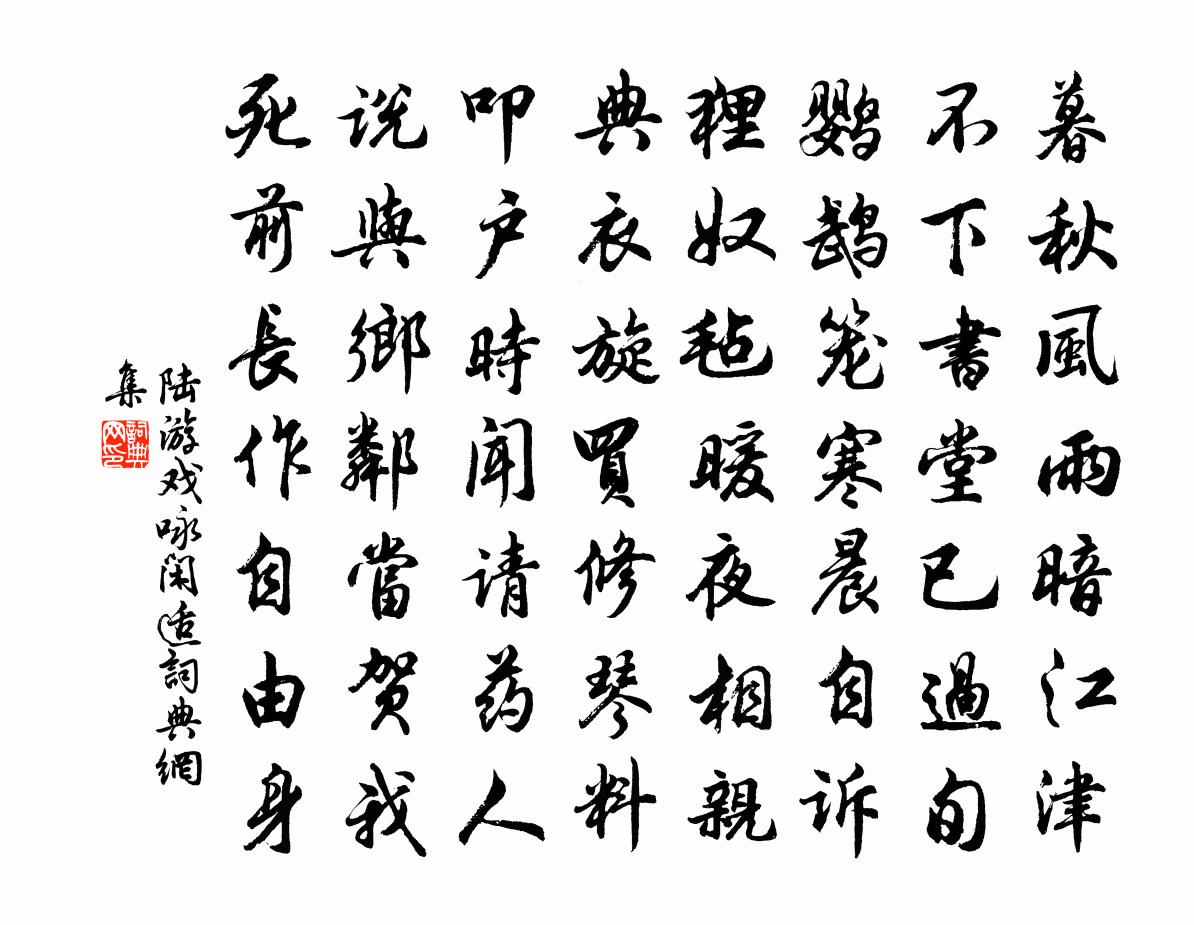 暮秋風雨暗江津
不下書堂已過旬
鹦鹉笼寒晨自诉
狸奴毡暖夜相親
典衣旋買修琴料
叩户時闻请药人
说與鄉鄰當贺我
死前長作自由身
陆游戏咏闲适詞典網
集
詞典网印